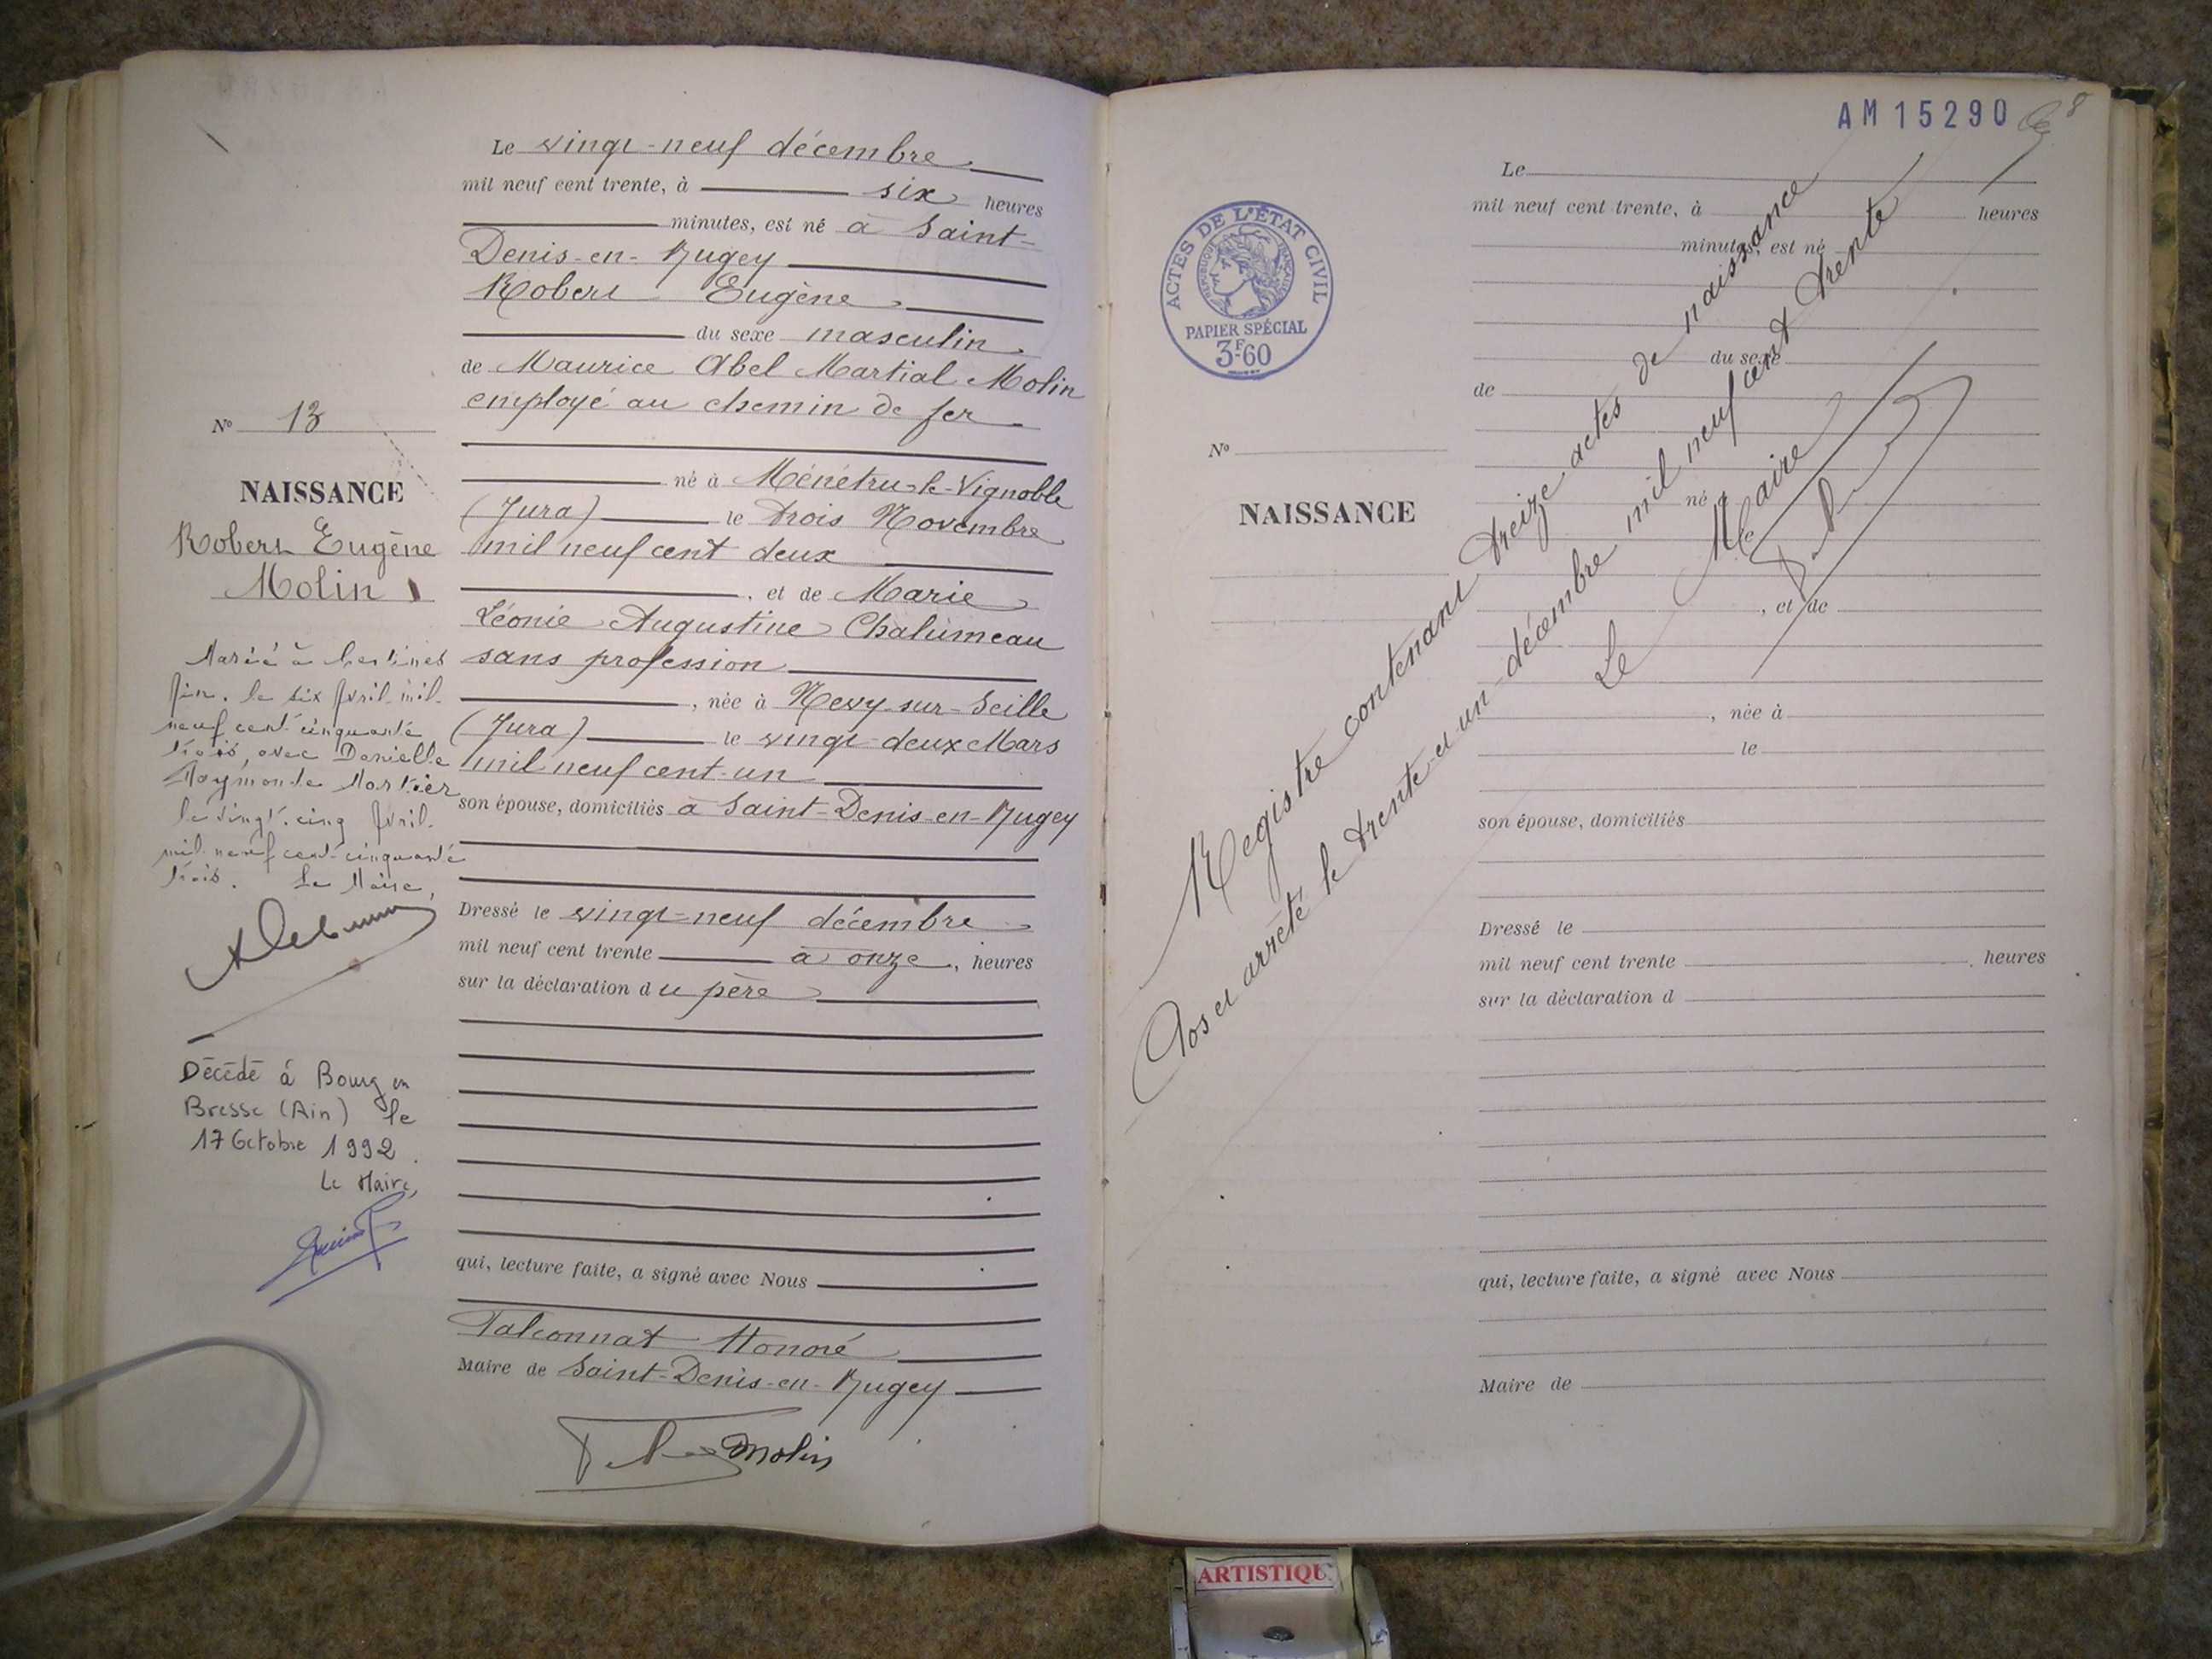 Le vingt-neuf décembre
mil neuf cent trente, à six heures
minutes, est né à Saint-
Denis-en-Bugey
Robert Eugène
du sexe masculin
de Maurice Abel Martial Molin
employé au chemin de fer
né à Ménétru-le-Vignoble
(Jura) le trois Novembre
mil neuf cent deux
, et de Marie
Léonie Augustine Chalumeau
sans profession
, née à Nevy-sur-Seille
(Jura) le vingt-deux Mars
mil neuf cent-un
son épouse, domiciliés à Saint-Denis-en-Bugey
Dressé le vingt-neuf décembre
mil neuf cent trente à onze, heures
sur la déclaration du père
qui, lecture faite, a signé avec Nous
Falconnat Honoré
Maire de Saint-Denis-en-Bugey
Molin
N° 13
NAISSANCE
Robert Eugène
Molin
Marié à
Ain. le six Avril mil-
neuf cent cinquante
trois, avec Danielle
Raymonde Mortier
le vingt-cinq Avril-
mil neuf cent-cinquante
trois. Le Maire,
Décédé à Bourg en
Bresse (Ain) le
17 Octobre 1992.
Le Maire,
AM 15290
8
ACTES DE L'ÉTAT CIVIL
RÉPUBLIQUE FRANÇAISE
PAPIER SPÉCIAL
3F.60
N°
NAISSANCE
Le
mil neuf cent trente, à heures
minutes, est né
du sexe
de
né à
, et de
, née à
le
son épouse, domiciliés
Dressé le
mil neuf cent trente , heures
sur la déclaration d
qui, lecture faite, a signé avec Nous
Maire de
Registre contenant treize actes de naissance
Clos et arrêté le trente-et-un-décembre mil neuf cent trente
Le Maire
ARTISTIQU